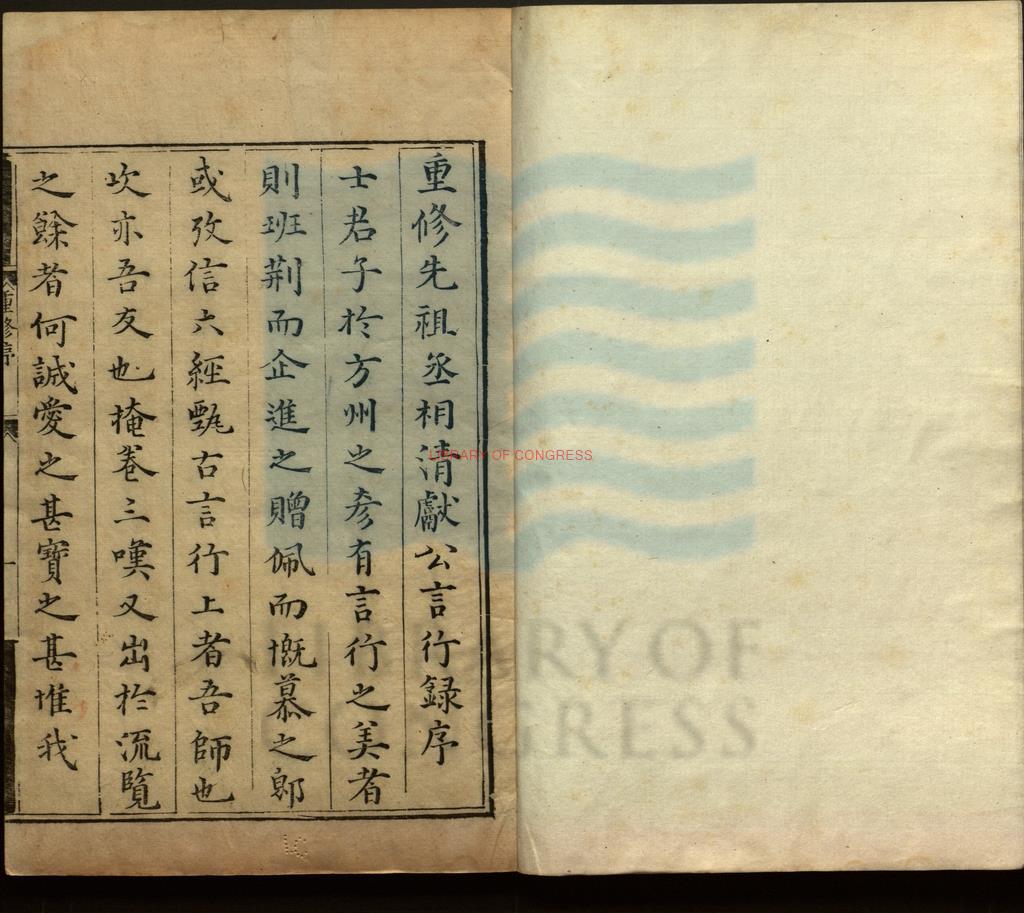 重修先祖丞相清獻公言行錄序
士君子扵方州之彥有言行之美者
則班荆而企進之贈佩而慨慕之郎
或攷信六經甄古言行上者吾師也
次亦吾友也掩卷三嘆又出扵流覽
之餘者何誠愛之甚寶之甚惟我
重修序
一
LIBRARY OF CONGRESS
LIBRARY OF CONGRESS